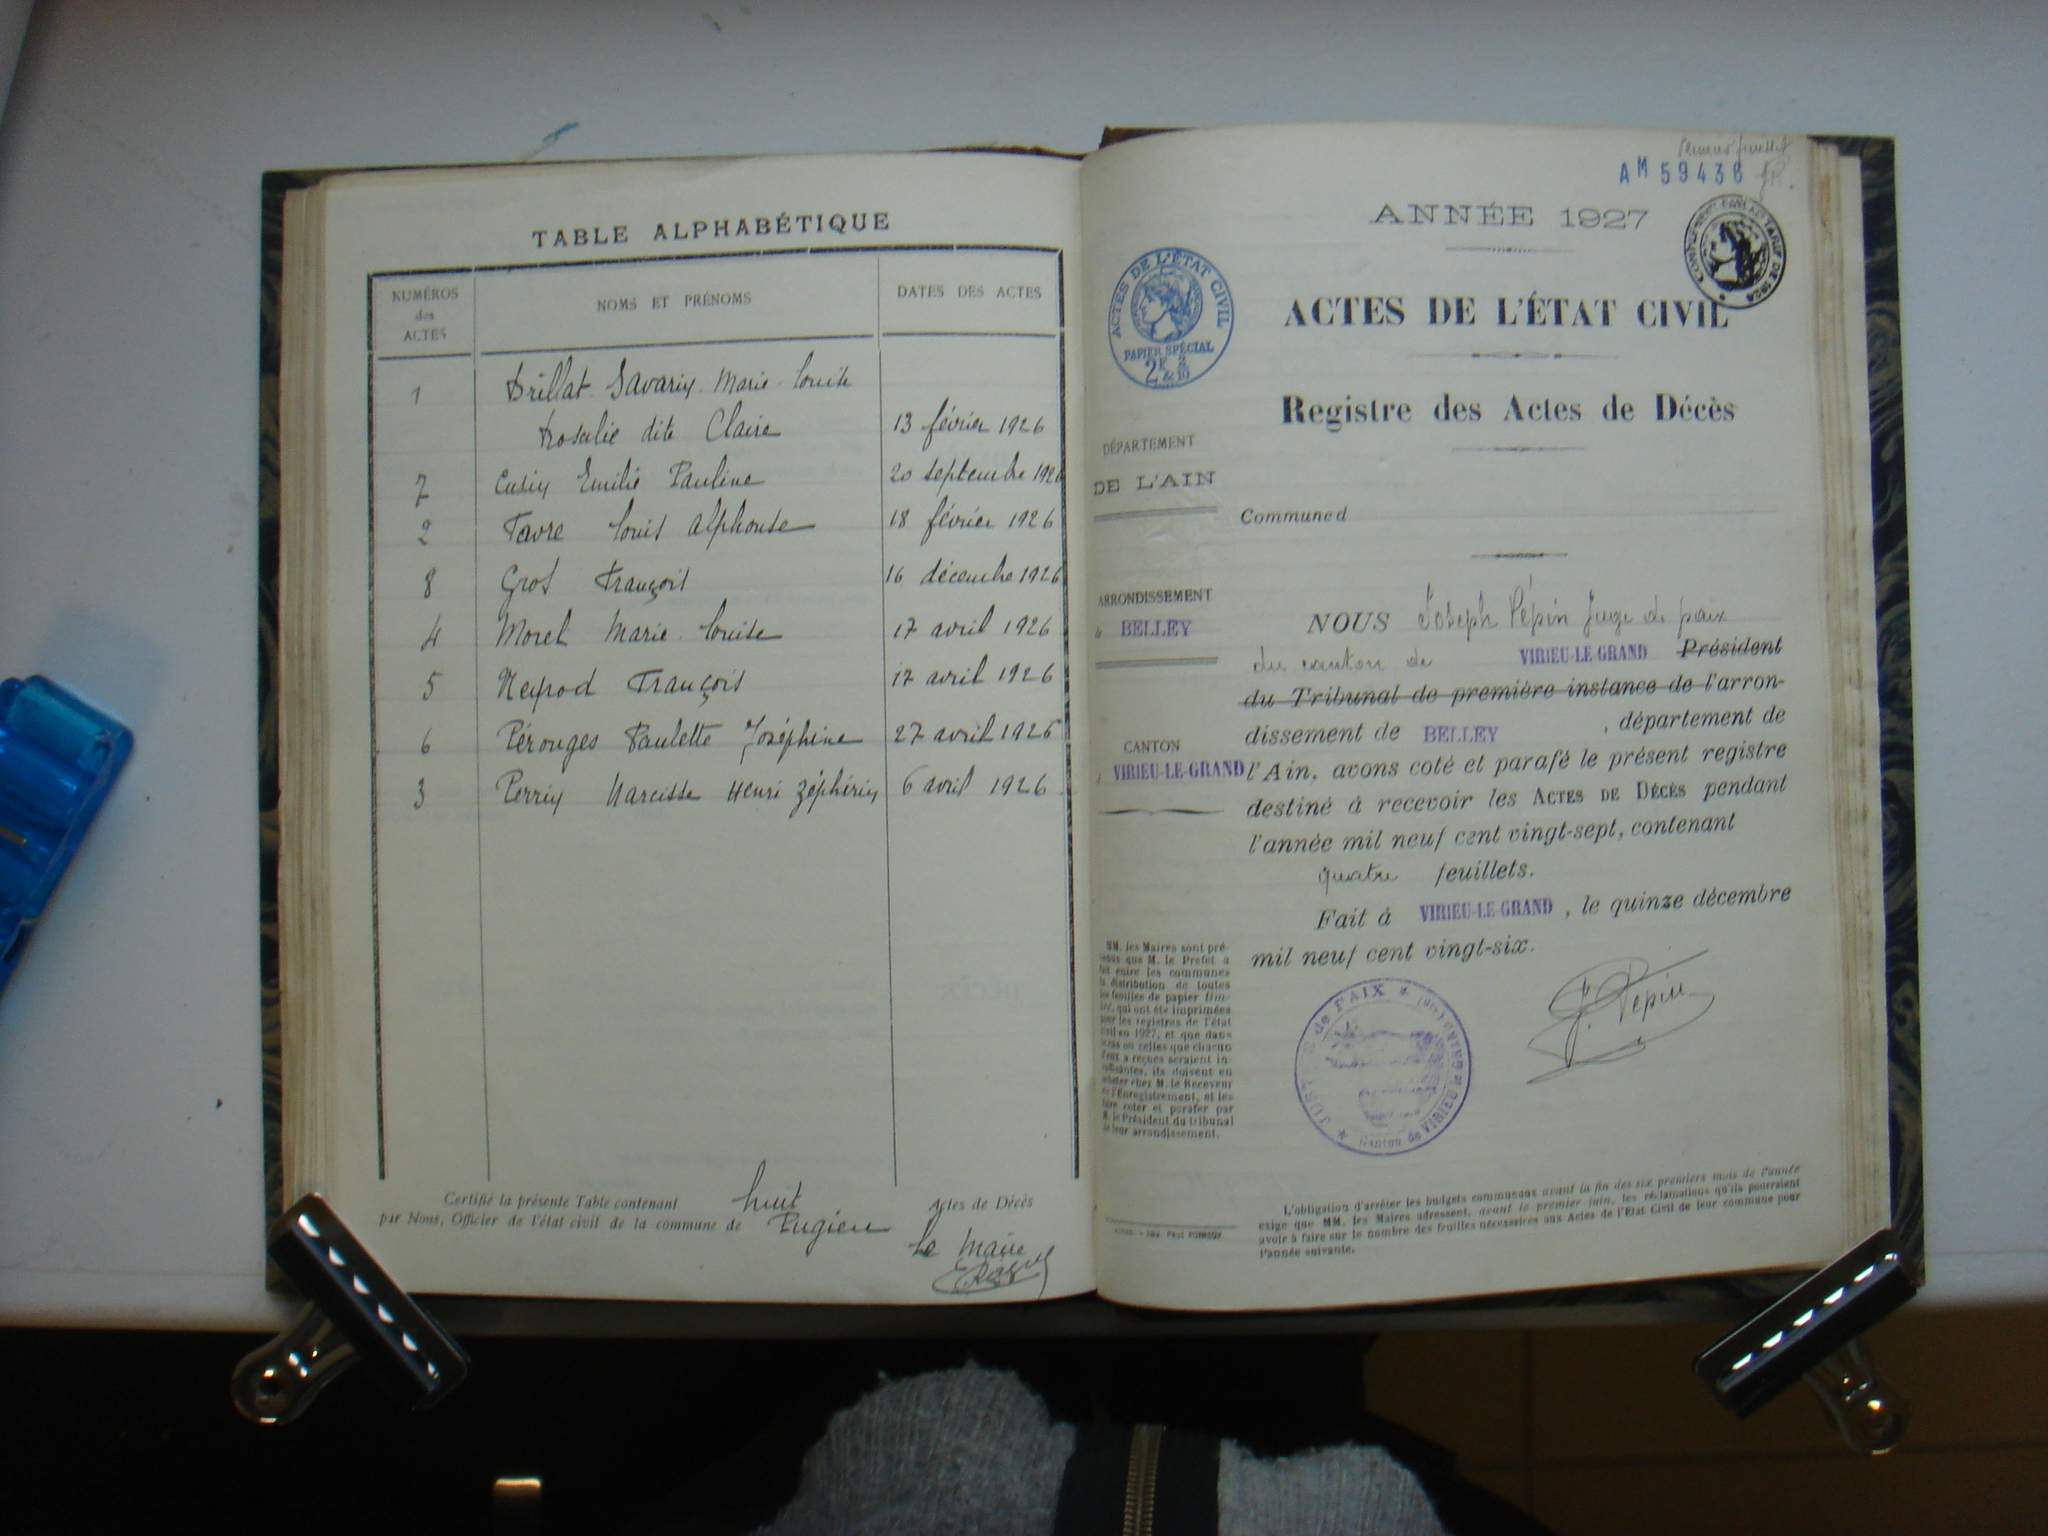 TABLE ALPHABÉTIQUE
NUMÉROS des ACTES
NOMS ET PRÉNOMS
DATES DES ACTES
1 Brillat-Savarin Marie-Louise
Rosalie dite Claire 13 février 1926
7 Cusin Emilie Pauline 20 septembre 1926
2 Favre Louis Alphonse 18 février 1926
8 Gros François 16 décembre 1926
4 Morel Marie-Louise 17 avril 1926
5 Neyrod François 17 avril 1926
6 Pérouges Paulette Joséphine 27 avril 1926
3 Perrin Narcisse Henri Zéphirin 6 avril 1926
Certifié la présente Table contenant huit Actes de Décès
par Nous, Officier de l'état civil de la commune de Pugieu
Le Maire
premier feuillet
AM 59436
ANNÉE 1927
ACTES DE L'ÉTAT CIVIL
PAPIER SPÉCIAL
ACTES DE L'ÉTAT CIVIL
Registre des Actes de Décès
DÉPARTEMENT
DE L'AIN
Communed
ARRONDISSEMENT
BELLEY
CANTON
VIRIEU-LE-GRAND
NOUS Joseph Pépin Juge de paix
du canton de VIRIEU-LE-GRAND Président
du Tribunal de première instance de l'arron-
dissement de BELLEY, département de
l'Ain, avons coté et parafé le présent registre
destiné à recevoir les ACTES DE DÉCÈS pendant
l'année mil neuf cent vingt-sept, contenant
quatre feuillets.
Fait à VIRIEU-LE-GRAND, le quinze décembre
mil neuf cent vingt-six.
J. Pépin
de PAIX
Canton de VIRIEU LE GRAND
MM. les Maires sont pré-
venus que M. le Préfet a
fait entre les communes
la distribution de toutes
les feuilles de papier tim-
bré, qui ont été imprimées
pour les registres de l'état
civil en 1927, et que dans
le cas où celles que chacun
d'eux a reçues seraient in-
suffisantes, ils doivent en
acheter chez M. le Receveur
de l'Enregistrement, et les
faire coter et parafer par
M. le Président du tribunal
de leur arrondissement.
L'obligation d'arrêter les budgets communaux avant la fin des six premiers mois de l'année
exige que MM. les Maires adressent, avant le premier juin, les réclamations qu'ils pourraient
avoir à faire sur le nombre des feuilles nécessaires aux Actes de l'État Civil de leur commune pour
l'année suivante.